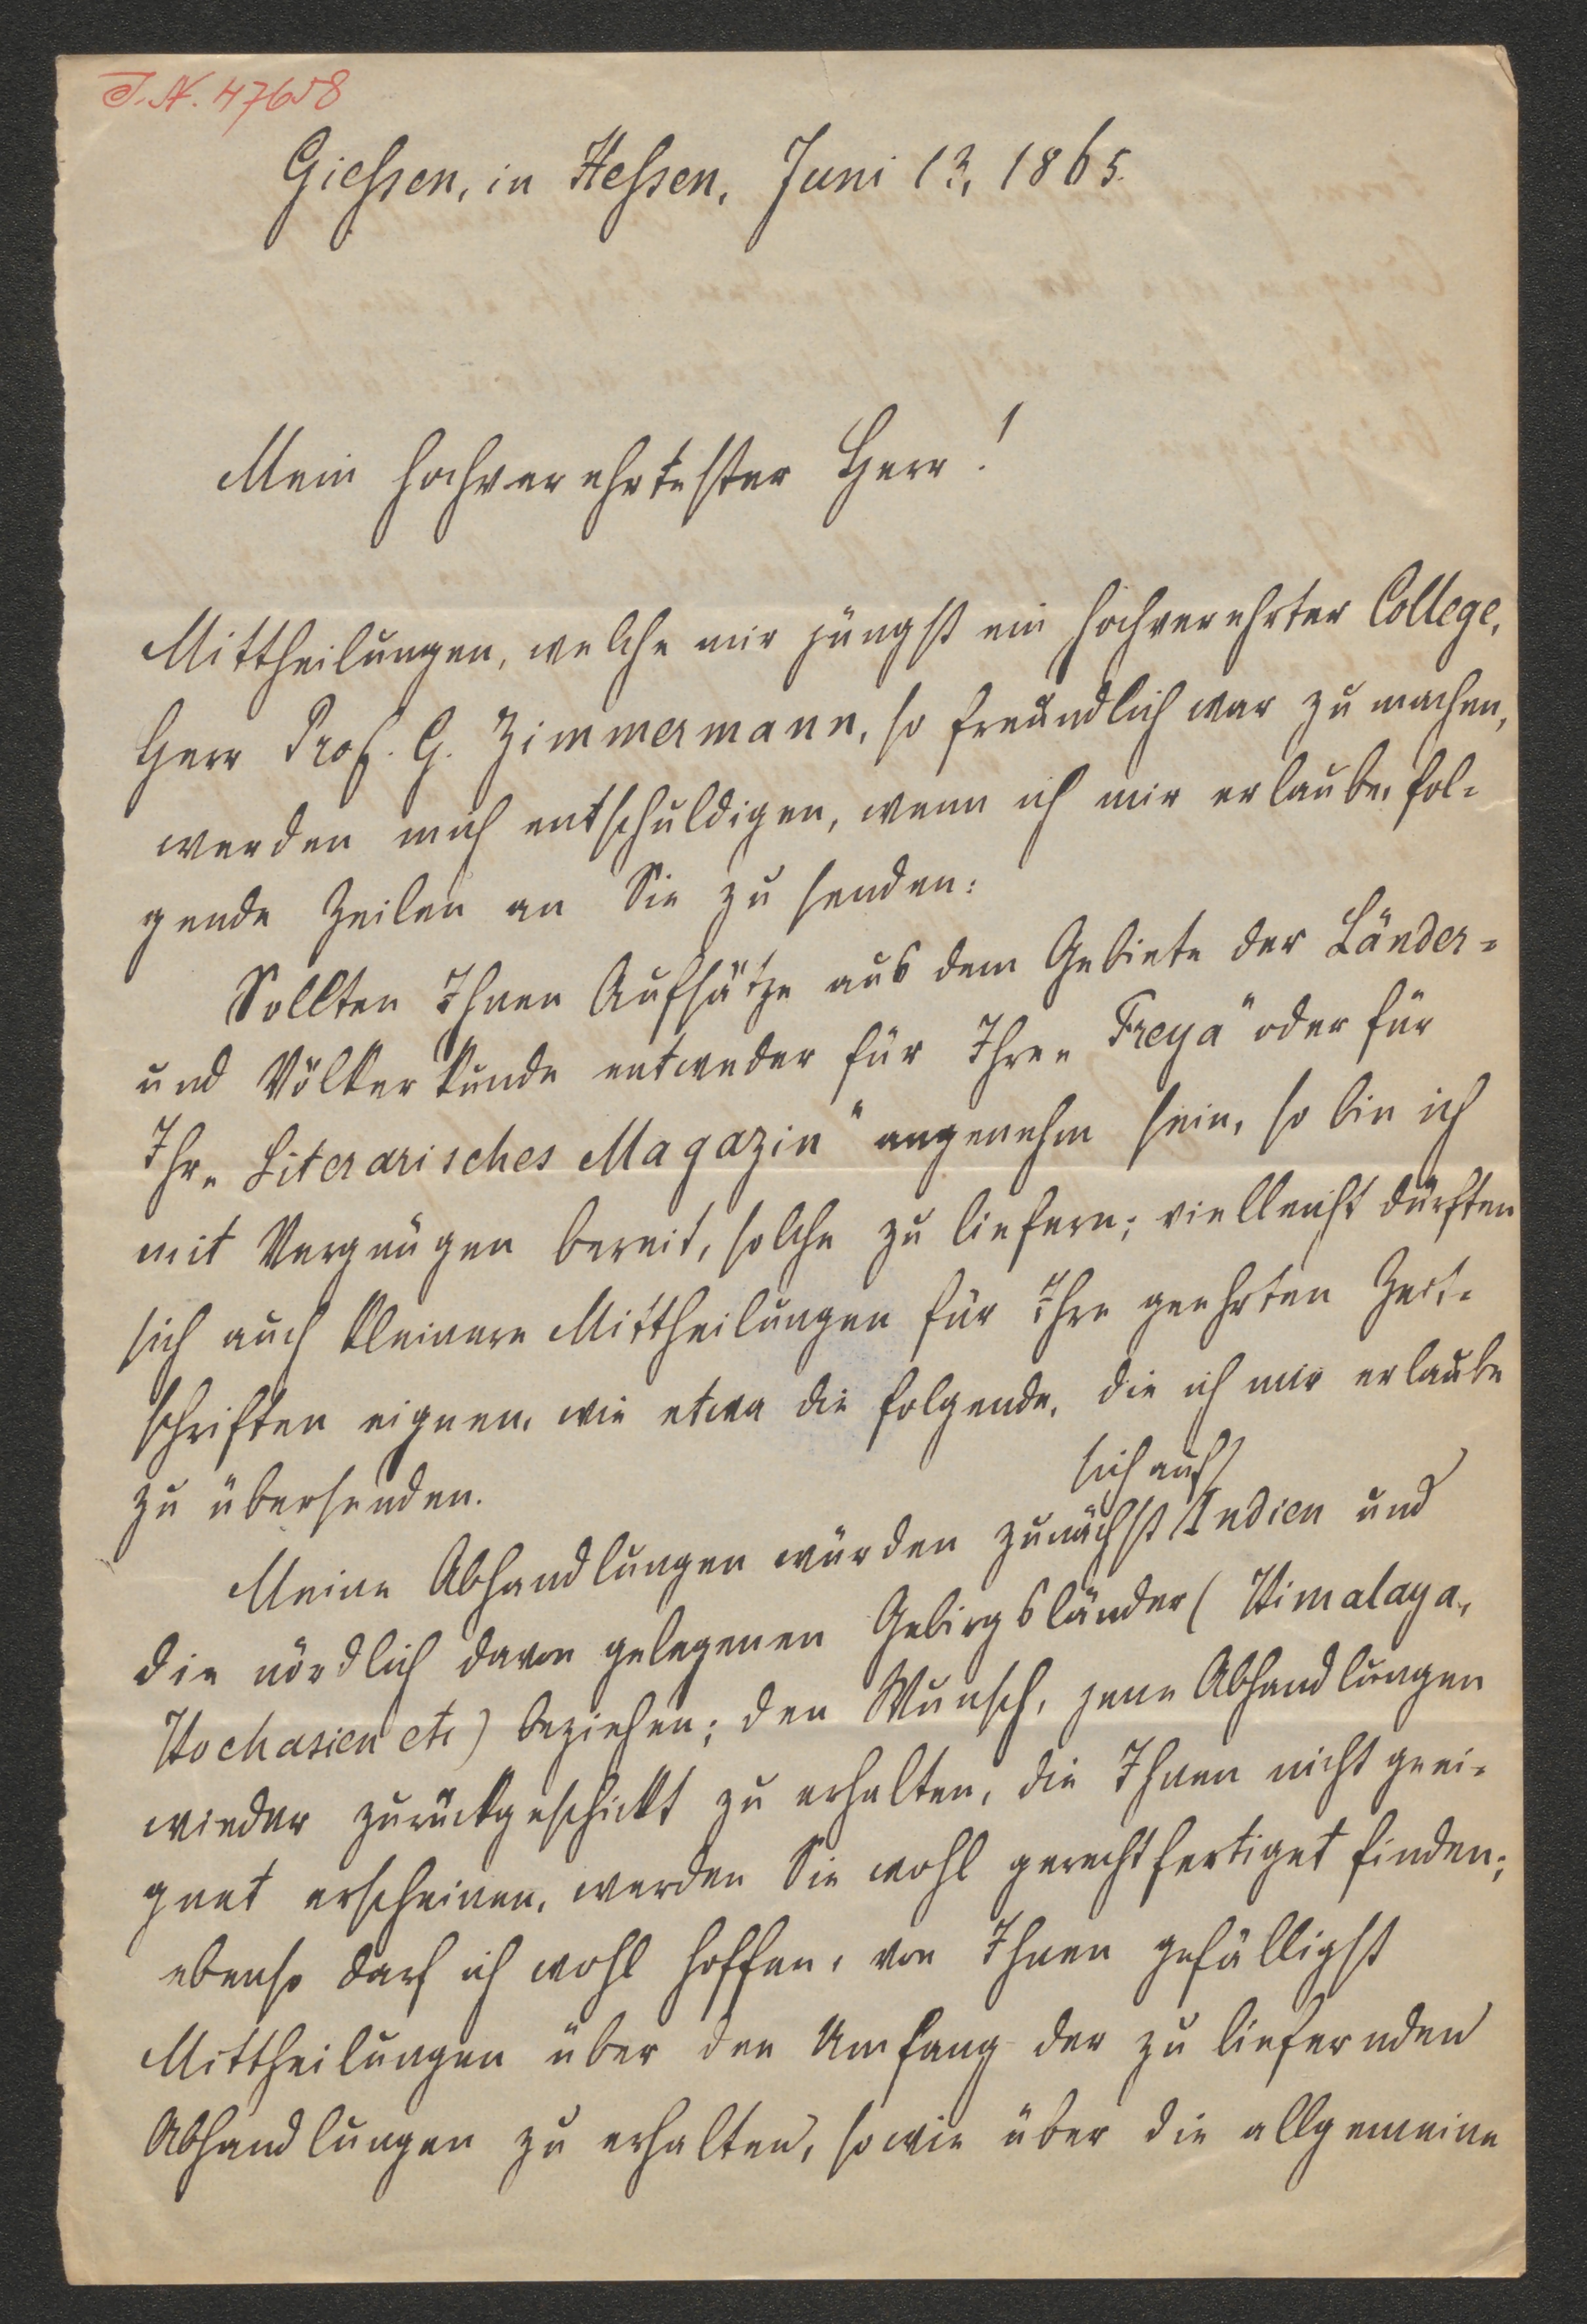 J. N. 47658
Giessen, in Hessen, Juni 13, 1865.
Mein hochverehrtester Herr!
Mittheilungen, welche mir jüngst ein hochverehrter College,
Herr Prof. G. Zimmermann, so freundlich war zu machen,
werden mich entschuldigen, wenn ich mir erlaube, fol-
gende Zeilen an Sie zu senden:
Sollten Ihnen Aufsätze aus dem Gebiete der Länder-
und Völkerkunde entweder für Ihre „Freya“ oder für
Ihr „Literarisches Magazin“ angenehm sein, so bin ich
mit Vergnügen bereit, solche zu liefern; vielleicht dürften
sich auch kleinere Mittheilungen für Ihre geehrten Zeit-
schriften eignen, wie etwa die folgende, die ich mir erlaube
zu übersenden.
sich auf
Meine Abhandlungen würden zunächst Indien und
die nördlich davon gelegenen Gebirgsländer (Himalaya,
Hochasien etc) beziehen; den Wunsch, jene Abhandlungen
wieder zurückgeschickt zu erhalten, die Ihnen nicht geei-
gnet erscheinen, werden Sie wohl gerechtfertiget finden;
ebenso darf ich wohl hoffen, von Ihnen gefälligst
Mittheilungen über den Umfang der zu liefernden
Abhandlungen zu erhalten, sowie über die allgemeine